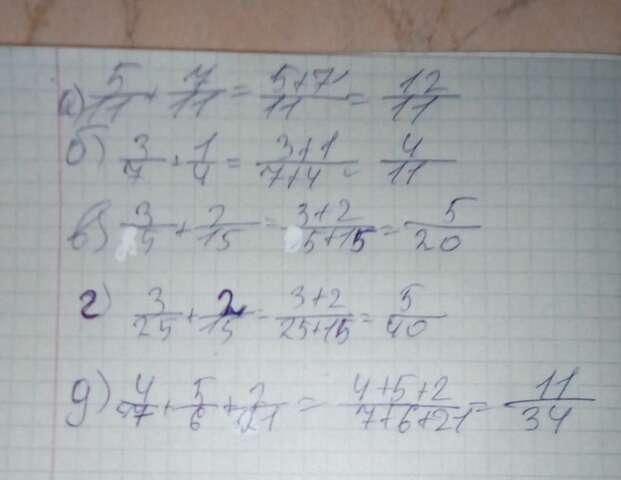 а) 5/11 + 7/11 = 5+7/11 = 12/11
б) 3/7 + 1/4 = 3+1/7+4 = 4/11
в) 3/5 + 2/15 = 3+2/5+15 = 5/20
г) 3/25 + 2/15 = 3+2/25+15 = 5/40
д) 4/7 + 5/6 + 2/21 = 4+5+2/7+6+21 = 11/34